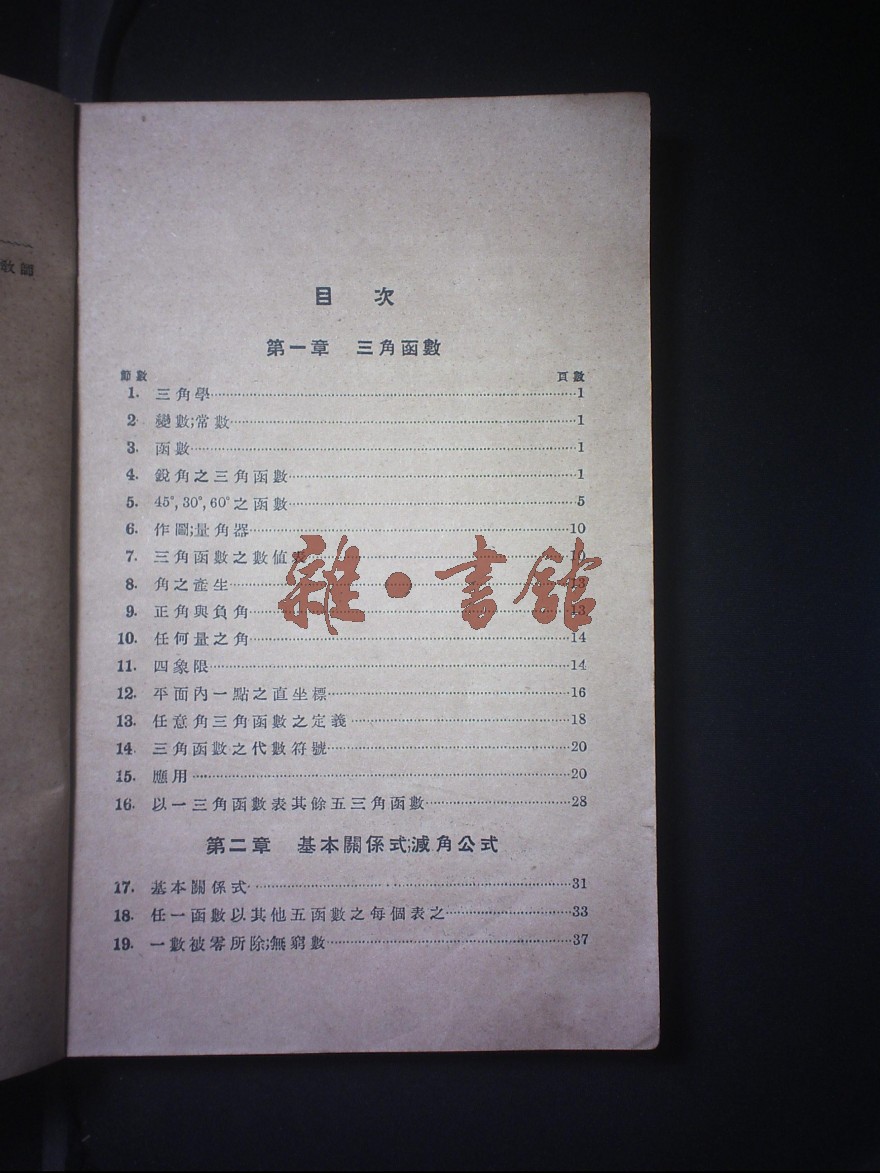 敬師
目 次
第一章 三角函數
節數 頁數
1. 三角學 1
2. 變數;常數 1
3. 函數 1
4. 銳角之三角函數 1
5. 45°, 30°, 60° 之函數 5
6. 作圖;量角器 10
7. 三角函數之數值表 10
8. 角之產生 13
9. 正角與負角 13
10. 任何量之角 14
11. 四象限 14
12. 平面內一點之直坐標 16
13. 任意角三角函數之定義 18
14. 三角函數之代數符號 20
15. 應用 20
16. 以一三角函數表其餘五三角函數 28
第二章 基本關係式;減角公式
17. 基本關係式 31
18. 任一函數以其他五函數之每個表之 33
19. 一數被零所除;無窮數 37
雜·書館